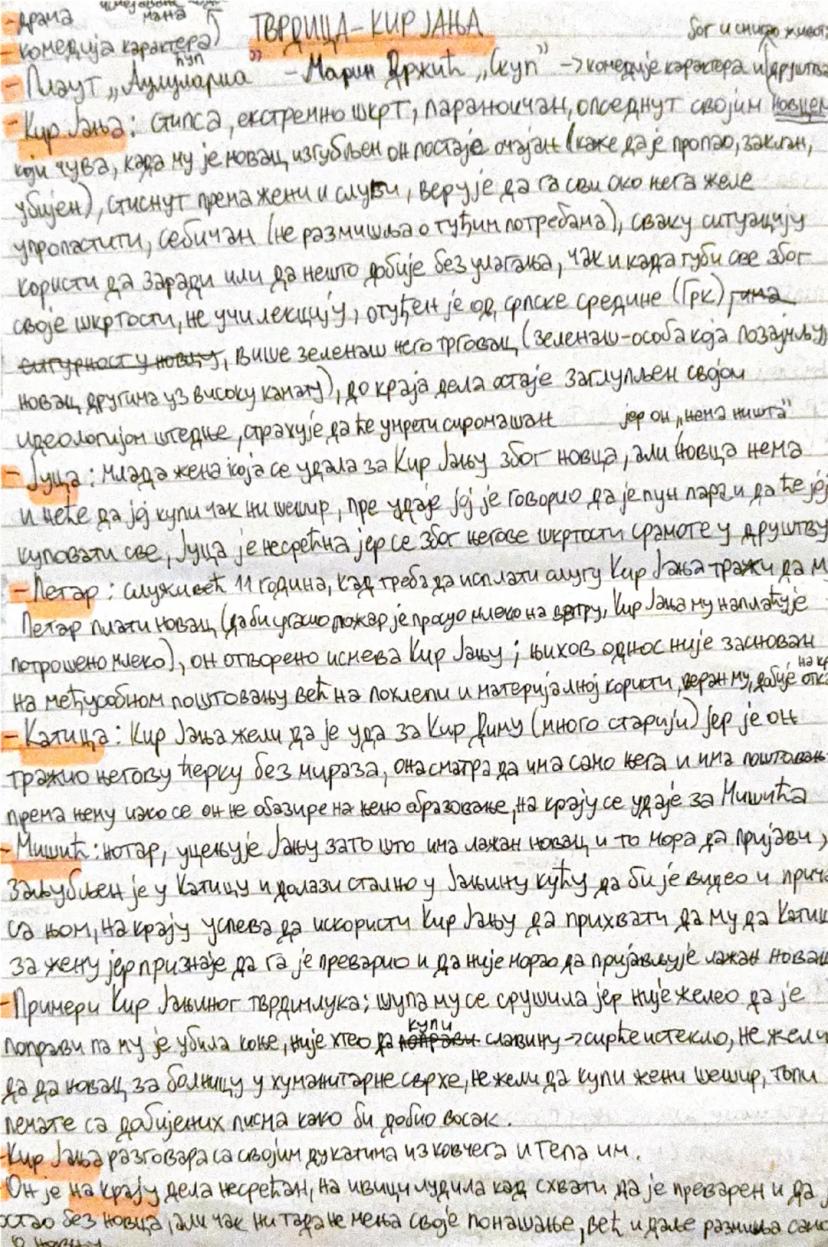 -драма мана
-комедија карактера) ТВРДИЦА-КИР ЈАЊА
-Плаут „Аулуларија" ћуп - Марин Држић „Скуп" -> комедије карактера и друштва
Бог и смисао живота
-Кир Јања: стипса, екстремно шкрт, параноичан, опседнут својим новцем
који чува, када му је новац изгубљен он постаје очајан (каже да је пропао, заклан,
убијен), стиснут према жени и слуги, верује да га сви око њега желе
упропастити, себичан (не размишља о туђим потребама), сваку ситуацију
користи да заради или да нешто добије без улагања, чак и када губи све због
своје шкртости, не учи лекцију, отуђен је од српске средине (Грк) има
сигурност у новцу, више зеленаш него трговац (зеленаш-особа која позајмљује
новац другима уз високу камату), до краја дела остаје заглупљен својом
идеологијом штедње, страхује да ће умрети сиромашан јер он „нема ништа"
-Јуца: млада жена која се удала за Кир Јању због новца, али новца нема
и неће да јој купи чак ни шешир, пре удаје јој је говорио да је пун пара и да ће јој
куповати све, Јуца је несрећна јер се због његове шкртости срамоте у друштву
-Петар: служи већ 11 година, кад треба да исплати слугу Кир Јања тражи да му
Петар плати новац (да би угасио пожар је просуо млеко на ватру, Кир Јања му наплаћује
потрошено млеко), он отворено исмева Кир Јању; њихов однос није заснован
на међусобном поштовању већ на похлепи и материјалној користи, веран му, добије отказ на крају
-Катица: Кир Јања жели да је уда за Кир Диму (много старији) јер је он
тражио његову ћерку без мираза, она сматра да има само њега и има поштовање
према њему иако се он не обазире на њено образовање, на крају се удаје за Мишића
-Мишић: нотар, уцењује Јању зато што има лажан новац и то мора да пријави,
заљубљен је у Катицу и долази стално у Јањину кућу да би је видео и причао
са њом, на крају успева да искористи Кир Јању да прихвати да му да Катицу
за жену јер признаје да га је преварио и да није морао да пријављује лажан новац
-Примери Кир Јањиног тврдичлука; шупа му се срушила јер није желео да је
поправи па му је убила коње, није хтео да поправи купи славину -> сирће истекло, не жели
да да новац за болницу у хуманитарне сврхе, не жели да купи жени шешир, топи
печате са добијених писма како би добио восак.
-Кир Јања разговара са својим дукатима из ковчега и тепа им.
Он је на крају дела несрећан, на ивици лудила кад схвати да је преварен и да је
остао без новца, али чак ни тада не мења своје понашање, већ и даље размишља само
о новцу